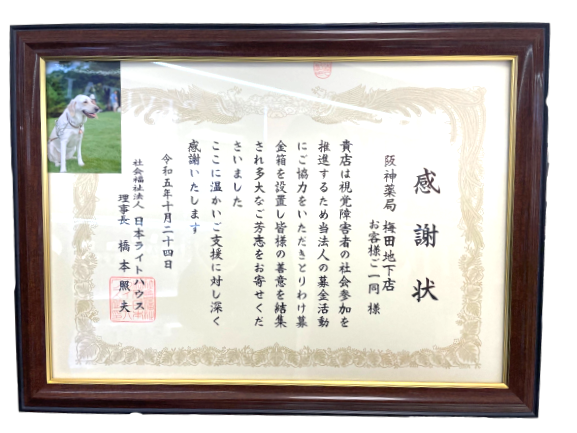 感謝状
阪神薬局 梅田地下店
お客様ご一同 様
貴店は視覚障害者の社会参加を
推進するため当法人の募金活動
にご協力をいただきとりわけ募
金箱を設置し皆様の善意を結集
され多大なご芳志をお寄せくだ
さいました
ここに温かいご支援に対し深く
感謝いたします
令和五年十月二十四日
社会福祉法人 日本ライトハウス
理事長 橋本照夫